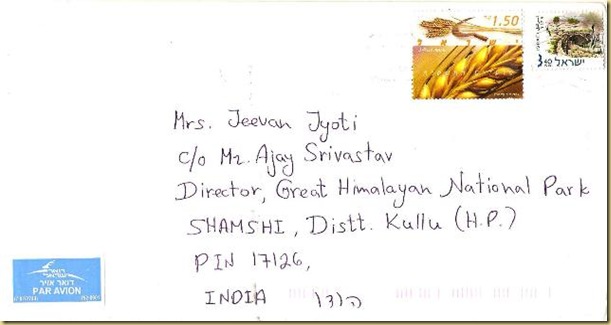 1.50
3.40 ישראל
Mrs. Jeevan Jyoti
C/o Mr. Ajay Srivastav
Director, Great Himalayan National Park
SHAMSHI, Distt. Kullu (H.P.)
PIN 17126,
INDIA הודו
דואר אויר
PAR AVION